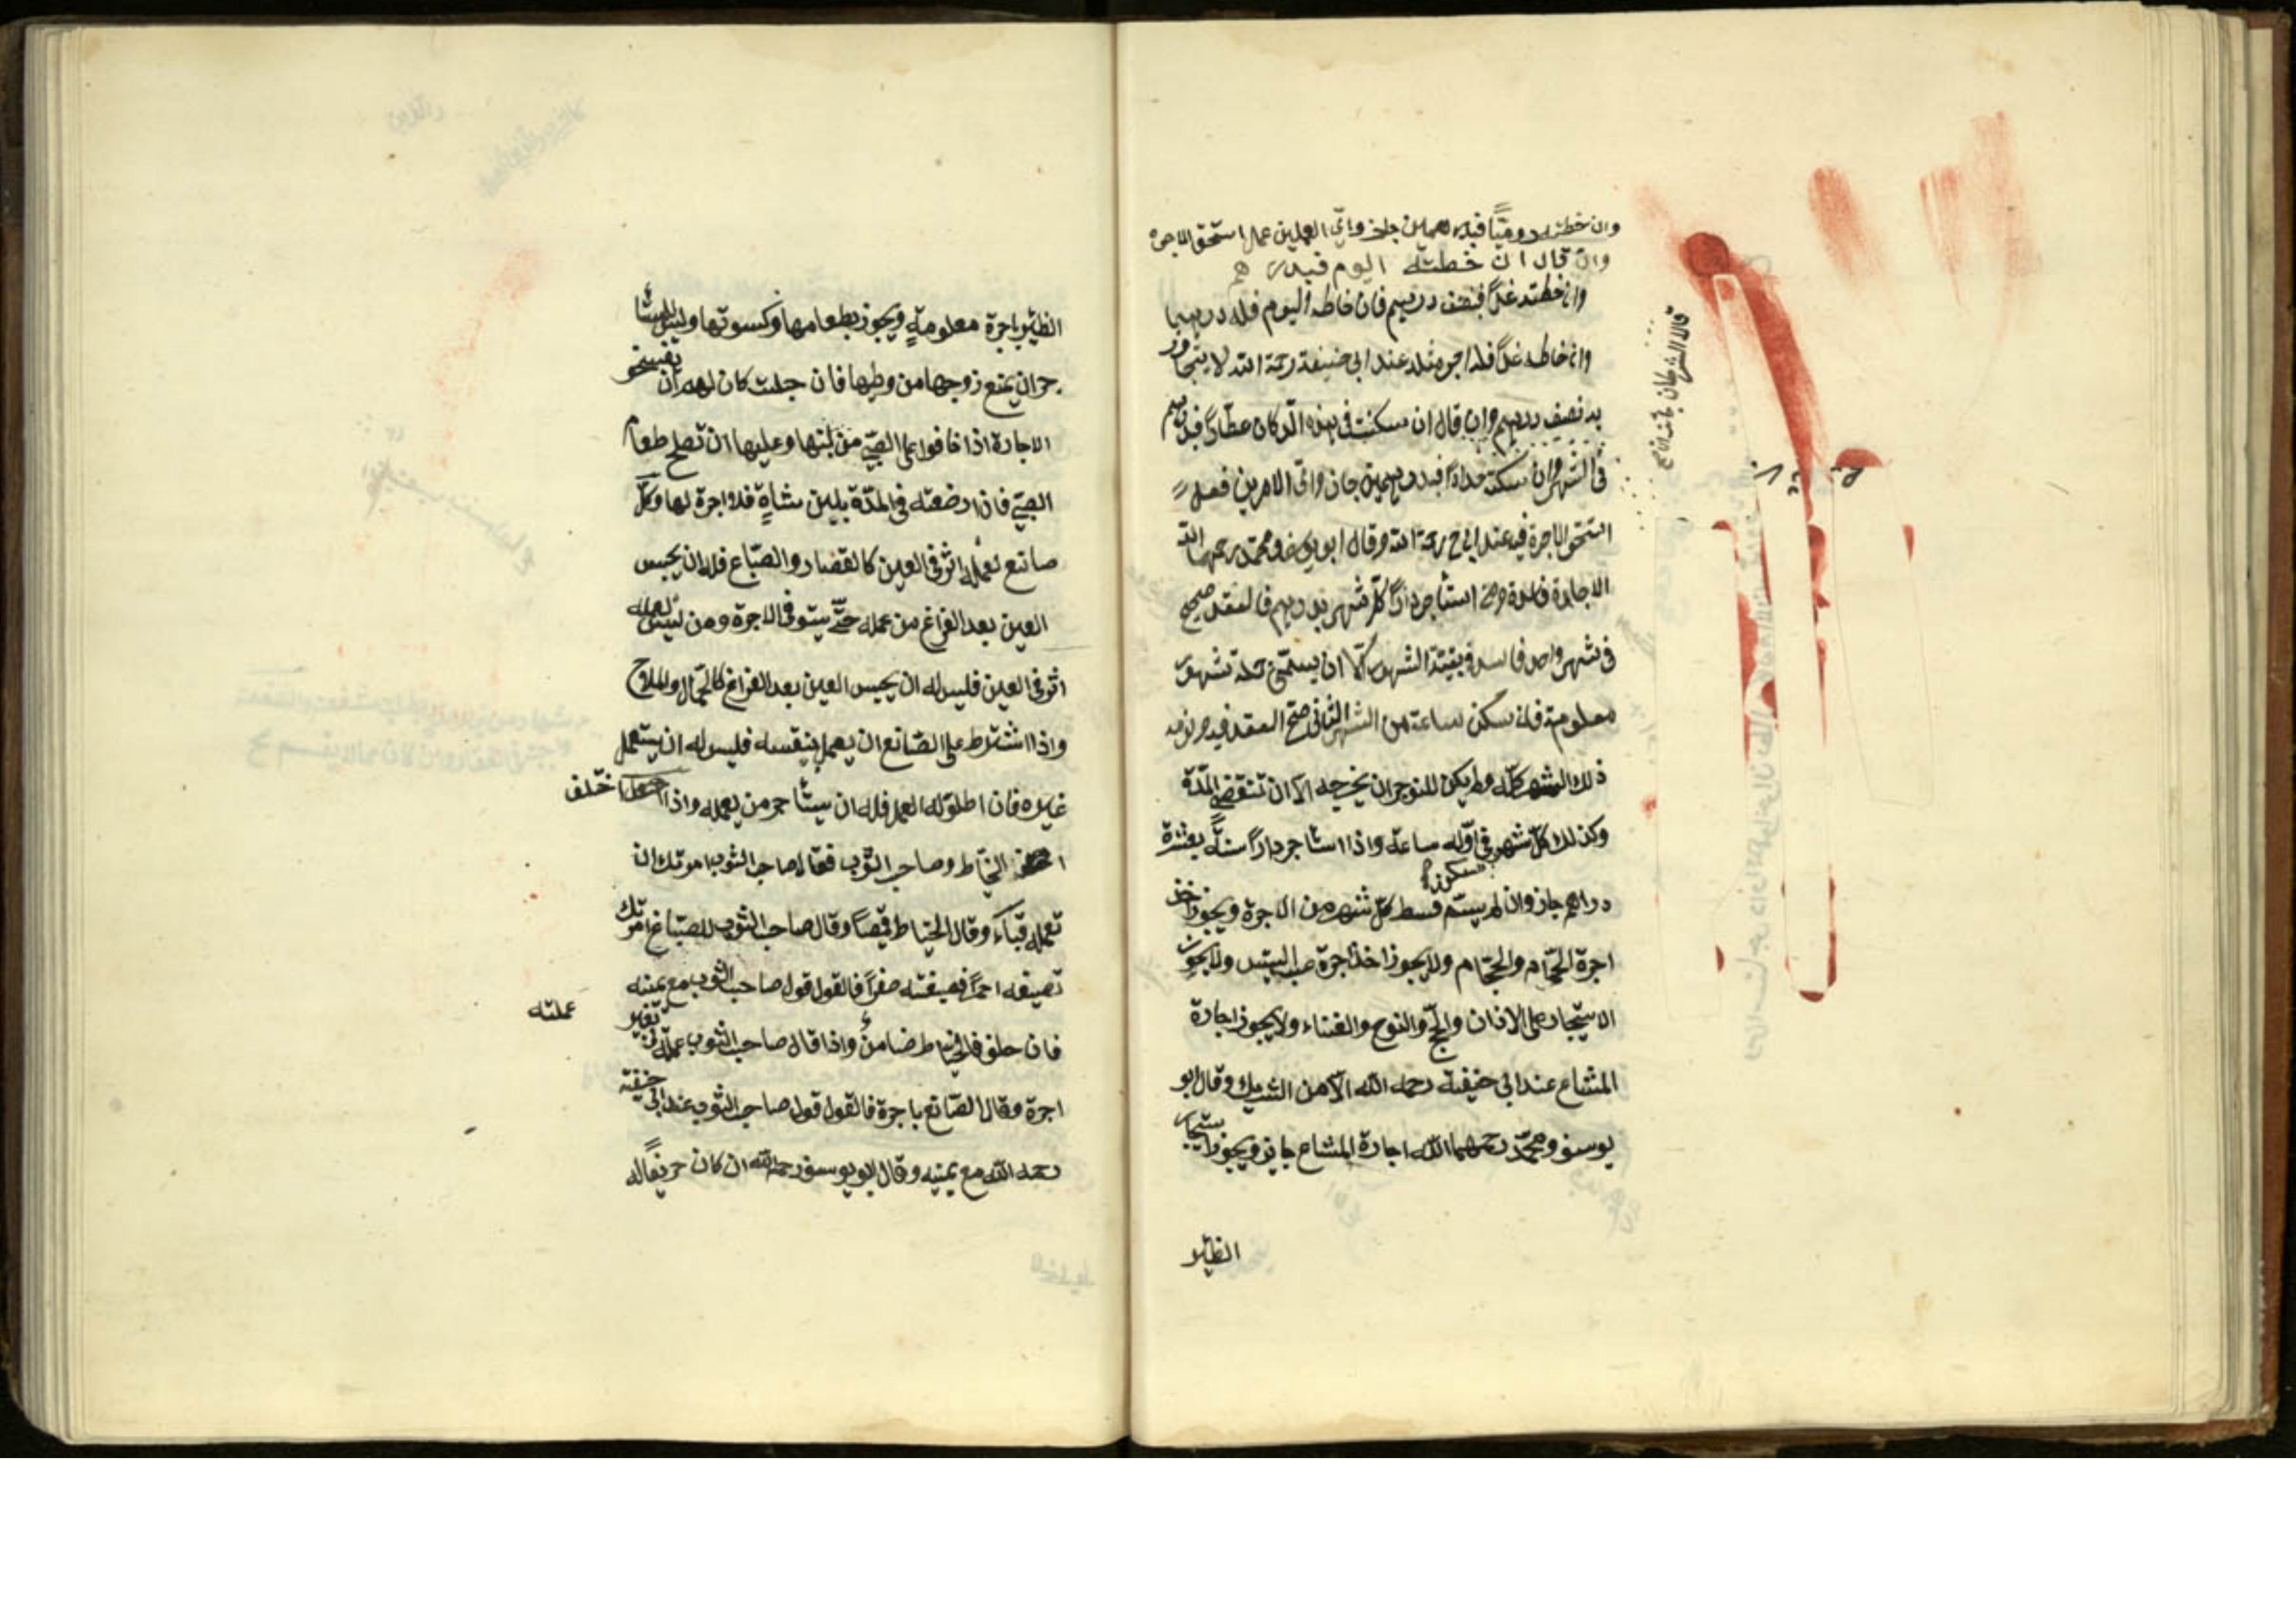 وان خطته روميًّا فبدرهمين جاز واي العملين عمل استحق الاجرة
وان قال ان خطته اليوم فبدرهم
وان خطته غدًا فبنصف درهم فان خاطه اليوم فله درهم
وان خاطه غدًا فله اجر مثله عند ابي حنيفة رحمة الله لا يتجاوز
به نصف درهم وان قال ان سكنت في هذه الدّكان عطّارًا فبدرهم
في الشهر وان سكنته حدادًا فبدرهمين جاز واي الامرين فعل
استحق الاجرة فيه عند ابي ح رحمة الله وقال ابو يوسف ومحمد رحمهما الله
الاجارة فاسدة ومن استأجر دارًا كلّ شهر بدرهم فالعقد صحيح
في شهر واحد فاسد في بقيّة الشهور الّا ان يسمّي جملة شهور
معلومة فان سكن ساعة من الشهر الثاني صحّ العقد فيه ولزمه
ذلك الشهر كلّه ولم يكن للموجر ان يخرجه الّا ان تنقضي المدّة
وكذلك كلّ شهر سكن في اوّله ساعة واذا استأجر دارًا سنةً بعشرة
دراهم جاز وان لم يسمّ قسط كلّ شهر من الاجرة ويجوز اخذ
اجرة الحمّام والحجّام ولا يجوز اخذ اجرة عسب التيس ولا يجوز
الاستيجار على الاذان والحجّ والنوح والغناء ولا يجوز اجارة
المشاع عند ابي حنيفة رحمه الله الّا من الشريك وقال ابو
يوسف ومحمّد رحمهما الله اجارة المشاع جايز ويجوز استيجار
الظئر
الظئير باجرة معلومةٍ ويجوز بطعامها وكسوتها وليس للمستأ
جر ان يمنع زوجها من وطيها فان حبلت كان لهم ان يفسخو
الاجارة اذا خافوا على الصبيّ من لبنها وعليها ان تصلح طعام
الصبيّ فان ارضعته في المدّة بلبن شاةٍ فلا اجرة لها وكلّ
صانع لعمله اثر في العين كالقصّار والصبّاغ فله ان يحبس
العين بعد الفراغ من عمله حتّى يستوفي الاجرة ومن ليس لعمله
اثر في العين فليس له ان يحبس العين بعد الفراغ كالحمّال والملاح
واذا اشترط على الصّانع ان يعمل بنفسه فليس له ان يستعمل
غيره فان اطلق له العمل فله ان يستأجر من يعمله واذا اختلف
الخيّاط وصاحب الثّوب فقال صاحب الثوب امرتك ان
تعمله قباءً وقال الخيّاط قميصًا وقال صاحب الثوب للصبّاغ امرتك
تصبغه احمرًا فصبغته صفرًا فالقول قول صاحب الثوب مع يمينه
فان حلف فالخيّاط ضامنٌ واذا قال صاحب الثوب عملته لي بغير
عملته
اجرة وقال الصّانع باجرة فالقول قول صاحب الثوب عند ابي حنيفة
رحمه الله مع يمينه وقال ابو يوسف رحمه الله ان كان حريفًا له